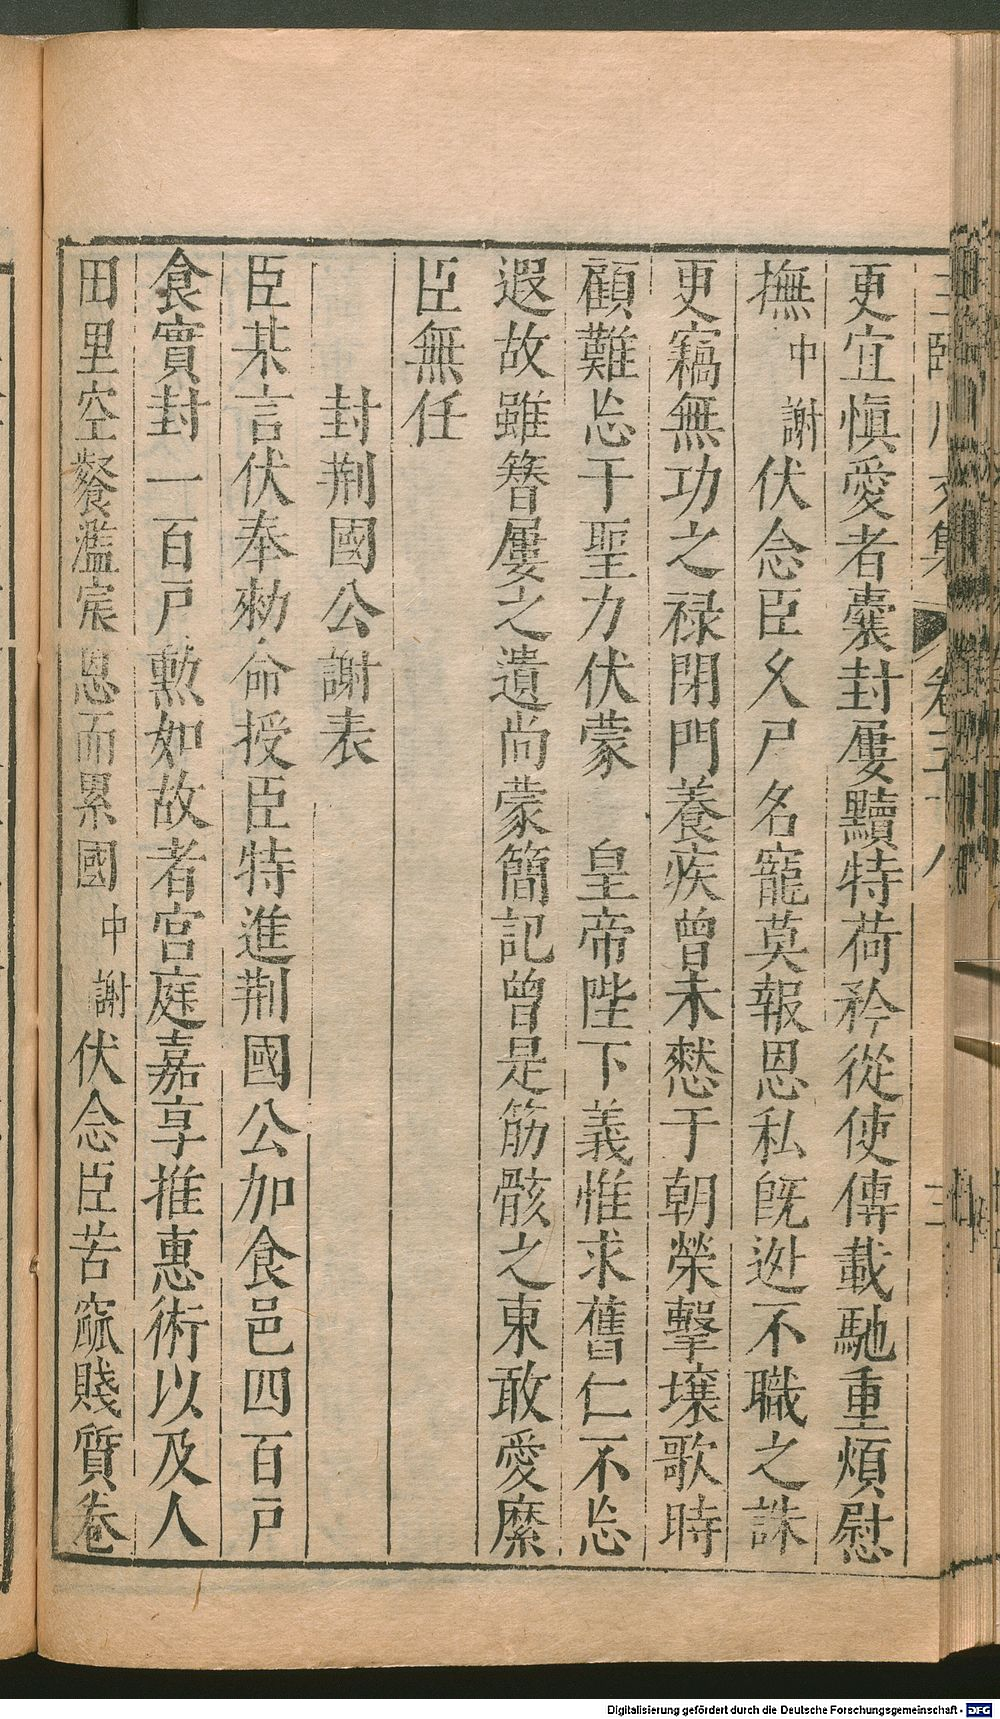 更宜愼愛者囊封屢黷特荷矜從使傳載馳重煩慰
撫中謝伏念臣久尸名寵莫報恩私旣逃不職之誅
更竊無功之禄閉門養疾曾未愸于朝榮擊壤歌時
顧難忘于聖力伏蒙 皇帝陛下義惟求舊仁不忘
遐故雖簪屨之遺尚蒙簡記曾是筋骸之束敢愛縻
臣無任
封荆國公謝表
臣某言伏奉勑命授臣特進荆國公加食邑四百戸
食實封一百戸勲如故者宮庭嘉享推惠術以及人
田里空餐濫宸恩而累國中謝伏念臣苦窳賤質卷
卷五十八
三
Digitalisierung gefördert durch die Deutsche Forschungsgemeinschaft - DFG